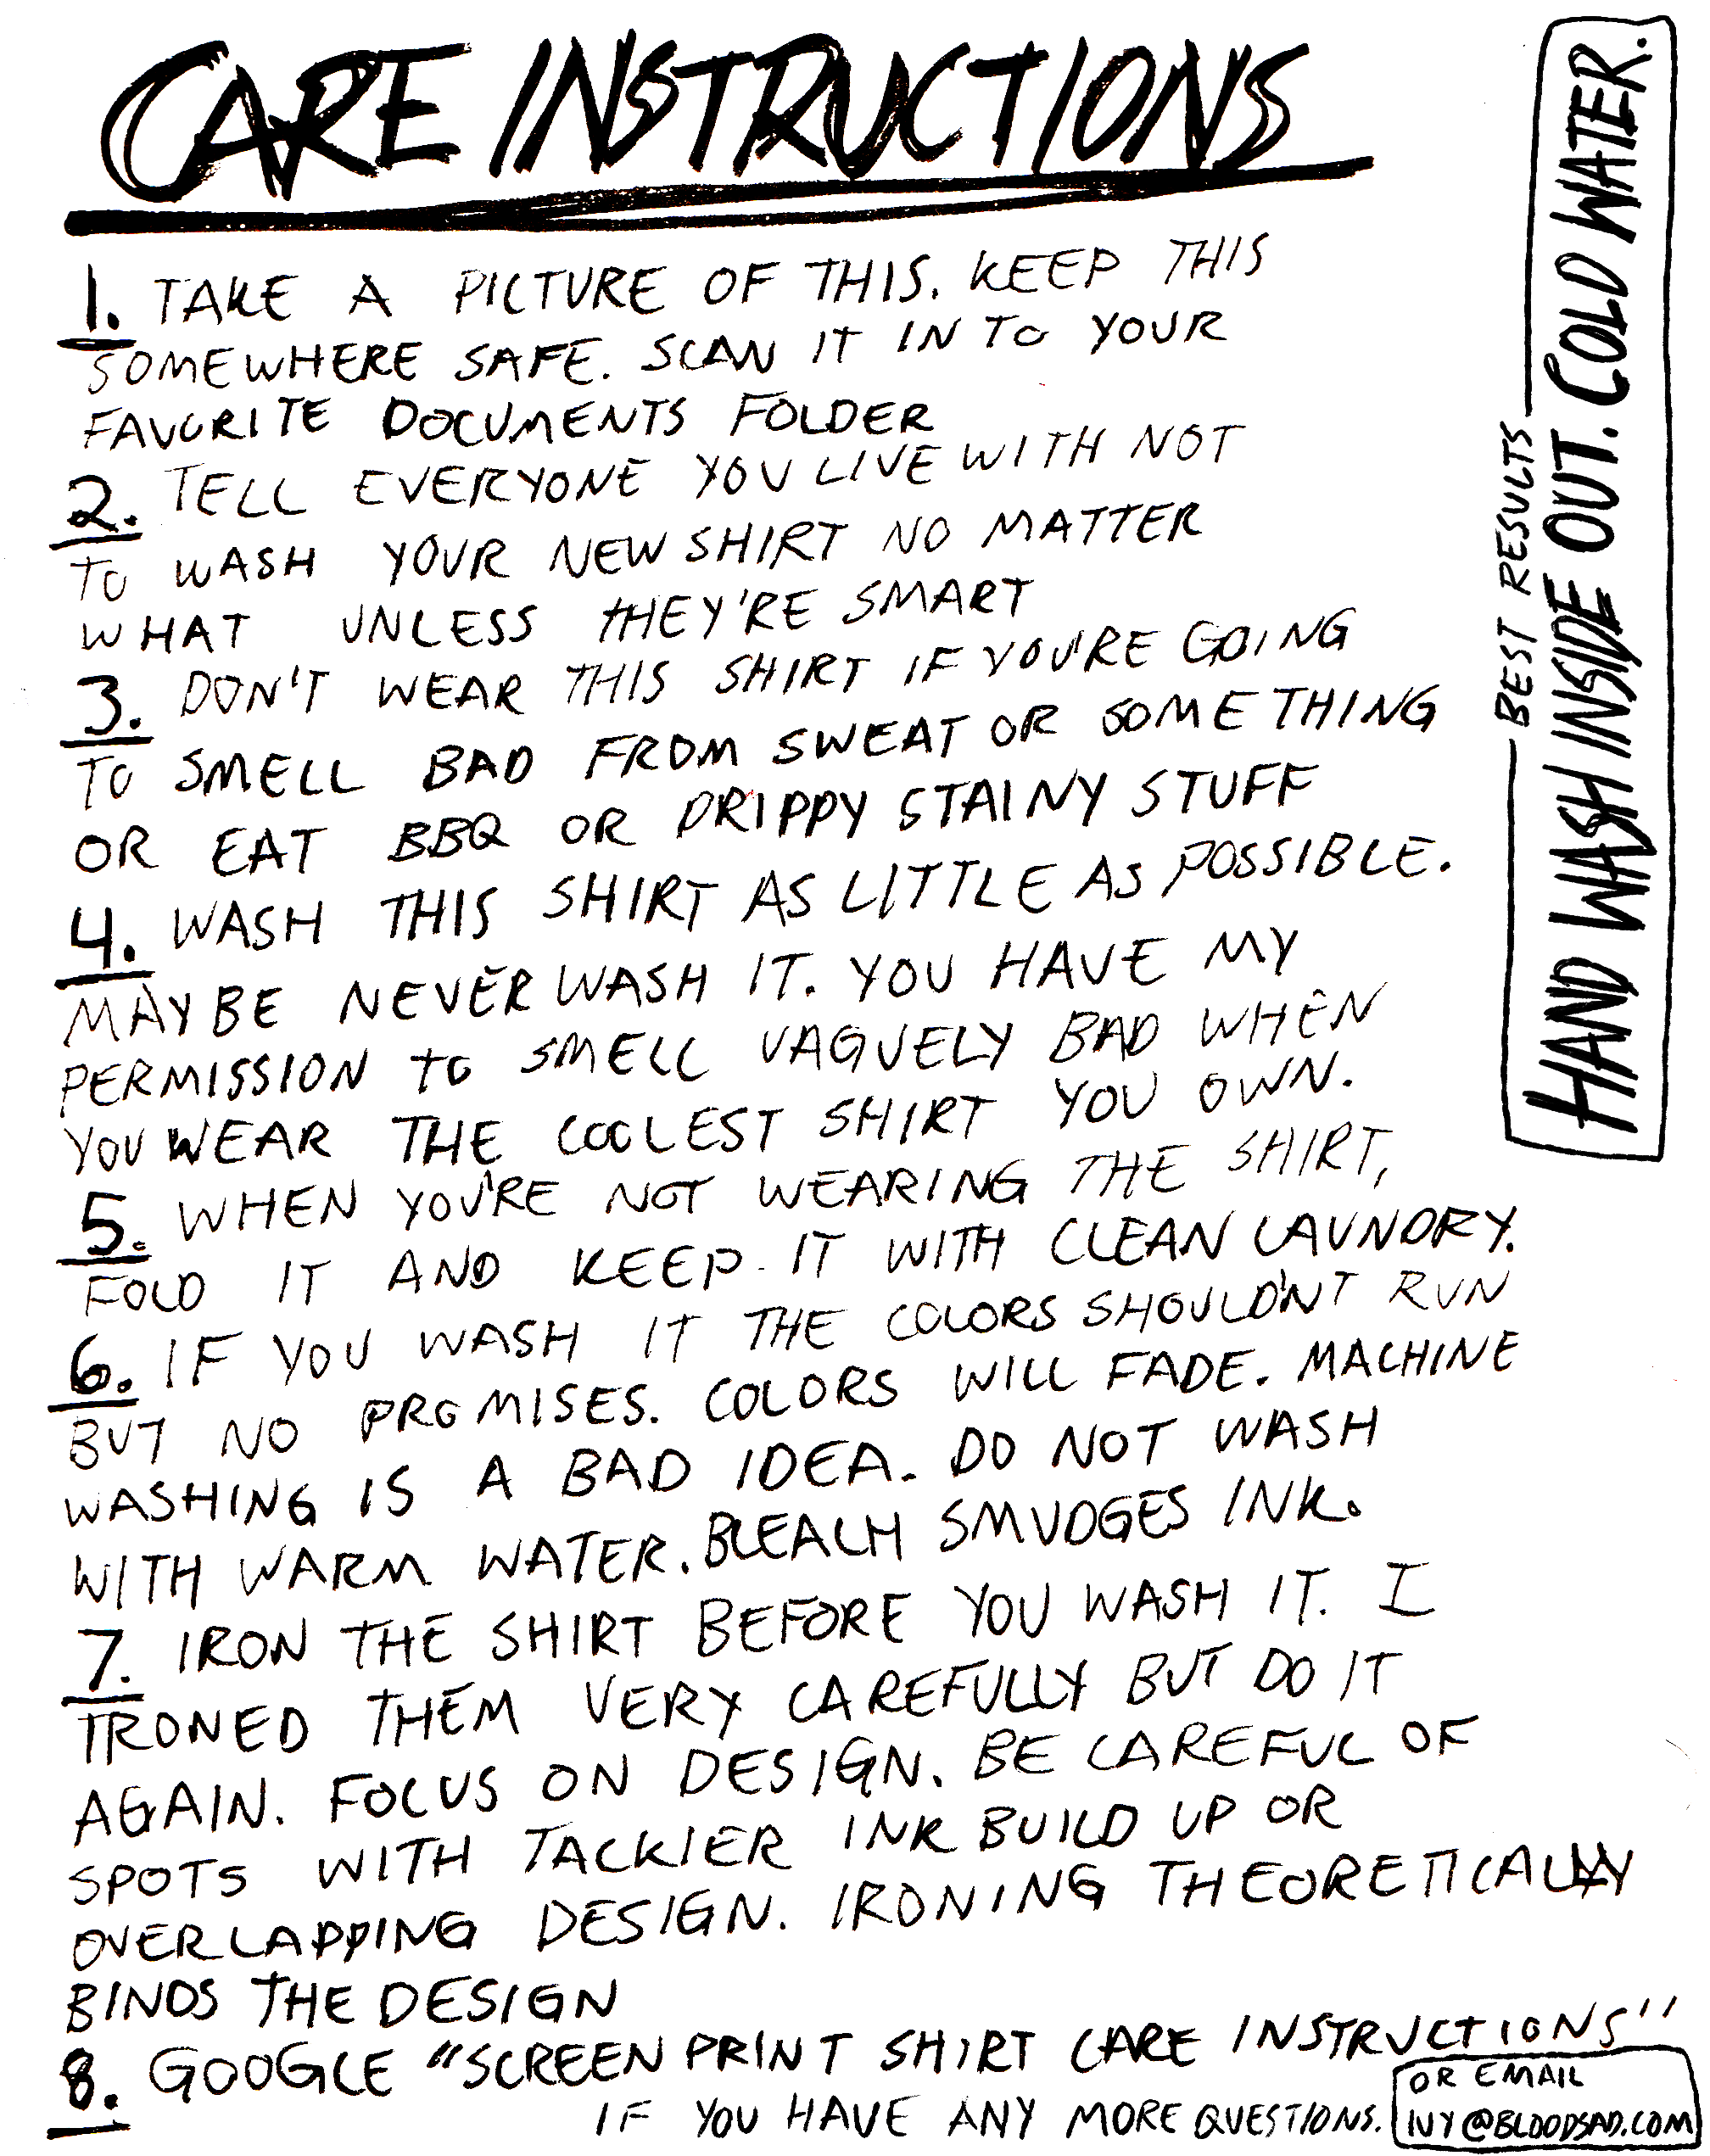 CARE INSTRUCTIONS
1. TAKE A PICTURE OF THIS. KEEP THIS
SOMEWHERE SAFE. SCAN IT IN TO YOUR
FAVORITE DOCUMENTS FOLDER
2. TELL EVERYONE YOU LIVE WITH NOT
TO WASH YOUR NEW SHIRT NO MATTER
WHAT UNLESS THEY'RE SMART
3. DON'T WEAR THIS SHIRT IF YOU'RE GOING
TO SMELL BAD FROM SWEAT OR SOMETHING
OR EAT BBQ OR DRIPPY STAINY STUFF
4. WASH THIS SHIRT AS LITTLE AS POSSIBLE.
MAYBE NEVER WASH IT. YOU HAVE MY
PERMISSION TO SMELL VAGUELY BAD WHEN
YOU WEAR THE COOLEST SHIRT YOU OWN.
5. WHEN YOU'RE NOT WEARING THE SHIRT,
FOLD IT AND KEEP IT WITH CLEAN LAUNDRY.
6. IF YOU WASH IT THE COLORS SHOULDN'T RUN
BUT NO PROMISES. COLORS WILL FADE. MACHINE
WASHING IS A BAD IDEA. DO NOT WASH
WITH WARM WATER. BLEACH SMUDGES INK.
7. IRON THE SHIRT BEFORE YOU WASH IT. I
IRONED THEM VERY CAREFULLY BUT DO IT
AGAIN. FOCUS ON DESIGN. BE CAREFUL OF
SPOTS WITH TACKIER INK BUILD UP OR
OVERLAPPING DESIGN. IRONING THEORETICALLY
BINDS THE DESIGN
8. GOOGLE "SCREEN PRINT SHIRT CARE INSTRUCTIONS"
IF YOU HAVE ANY MORE QUESTIONS.
OR EMAIL
IVY@BLOODSAD.COM
BEST RESULTS
HAND WASH INSIDE OUT. COLD WATER.